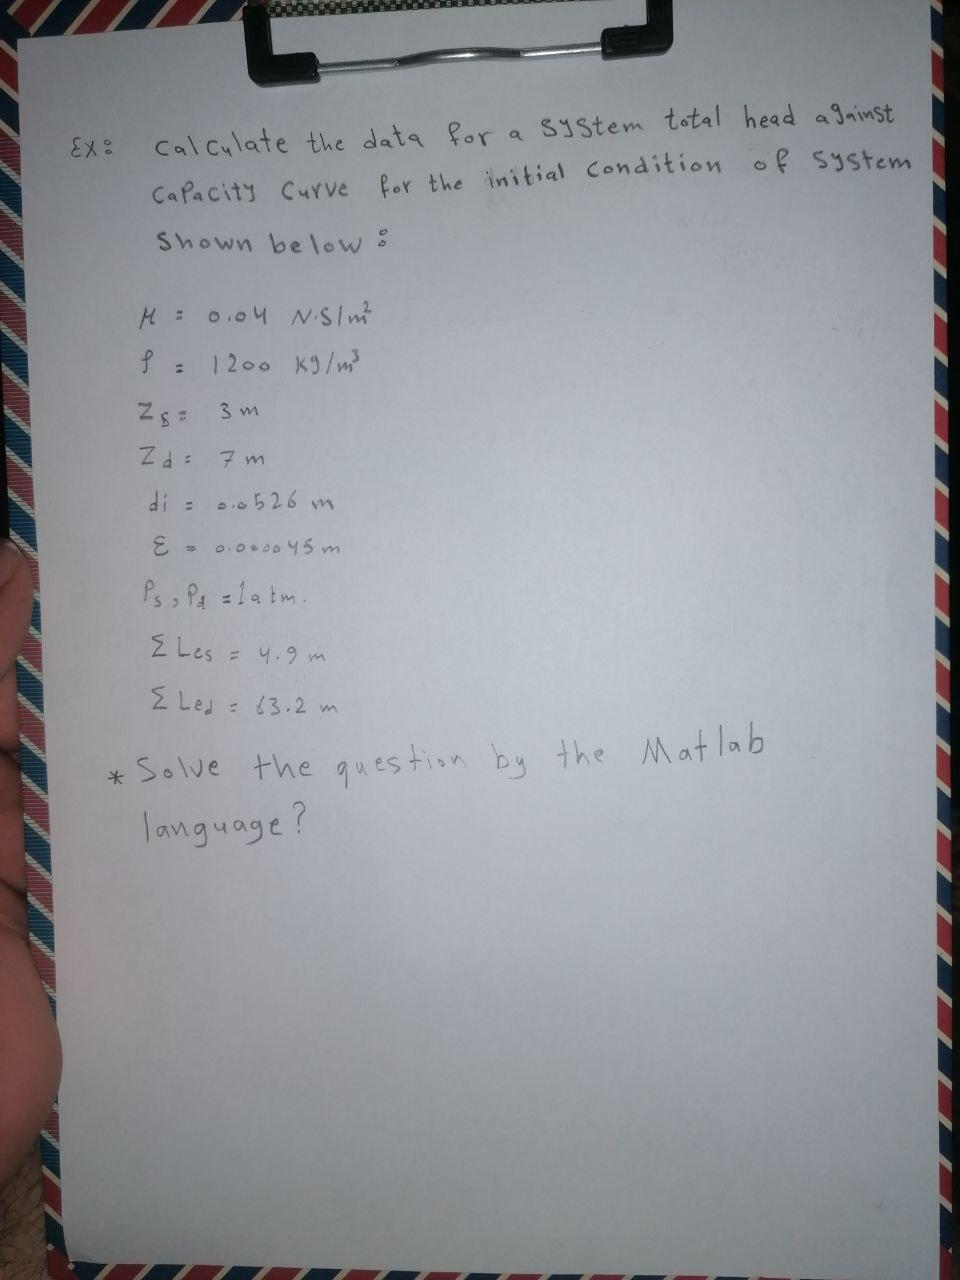 Ex: Calculate the data for a system total head against
Capacity Curve for the initial Condition of System
Shown below:
μ = 0.04 N.S/m²
ρ = 1200 kg/m³
Zs = 3 m
Zd = 7 m
di = 0.0526 m
ε = 0.000045 m
Ps, Pd = 1 atm.
Σ Les = 4.9 m
Σ Led = 63.2 m
* Solve the question by the Matlab
language?